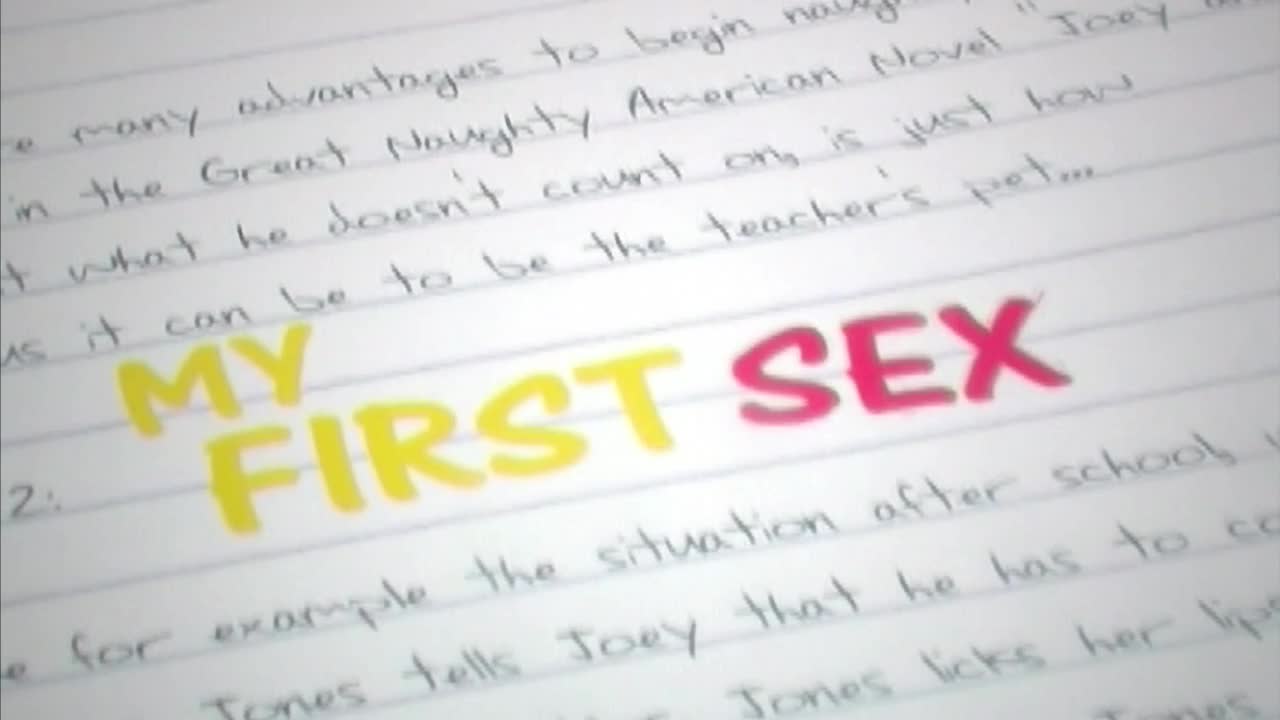 many advantages to begin
in the Great Naughty American Novel "Joey
what he doesn't count on, is just how
it can be to be the teacher's pet...
MY
FIRST SEX
2:
for example the situation after school,
Jones tells Joey that he has to
Jones licks her lips